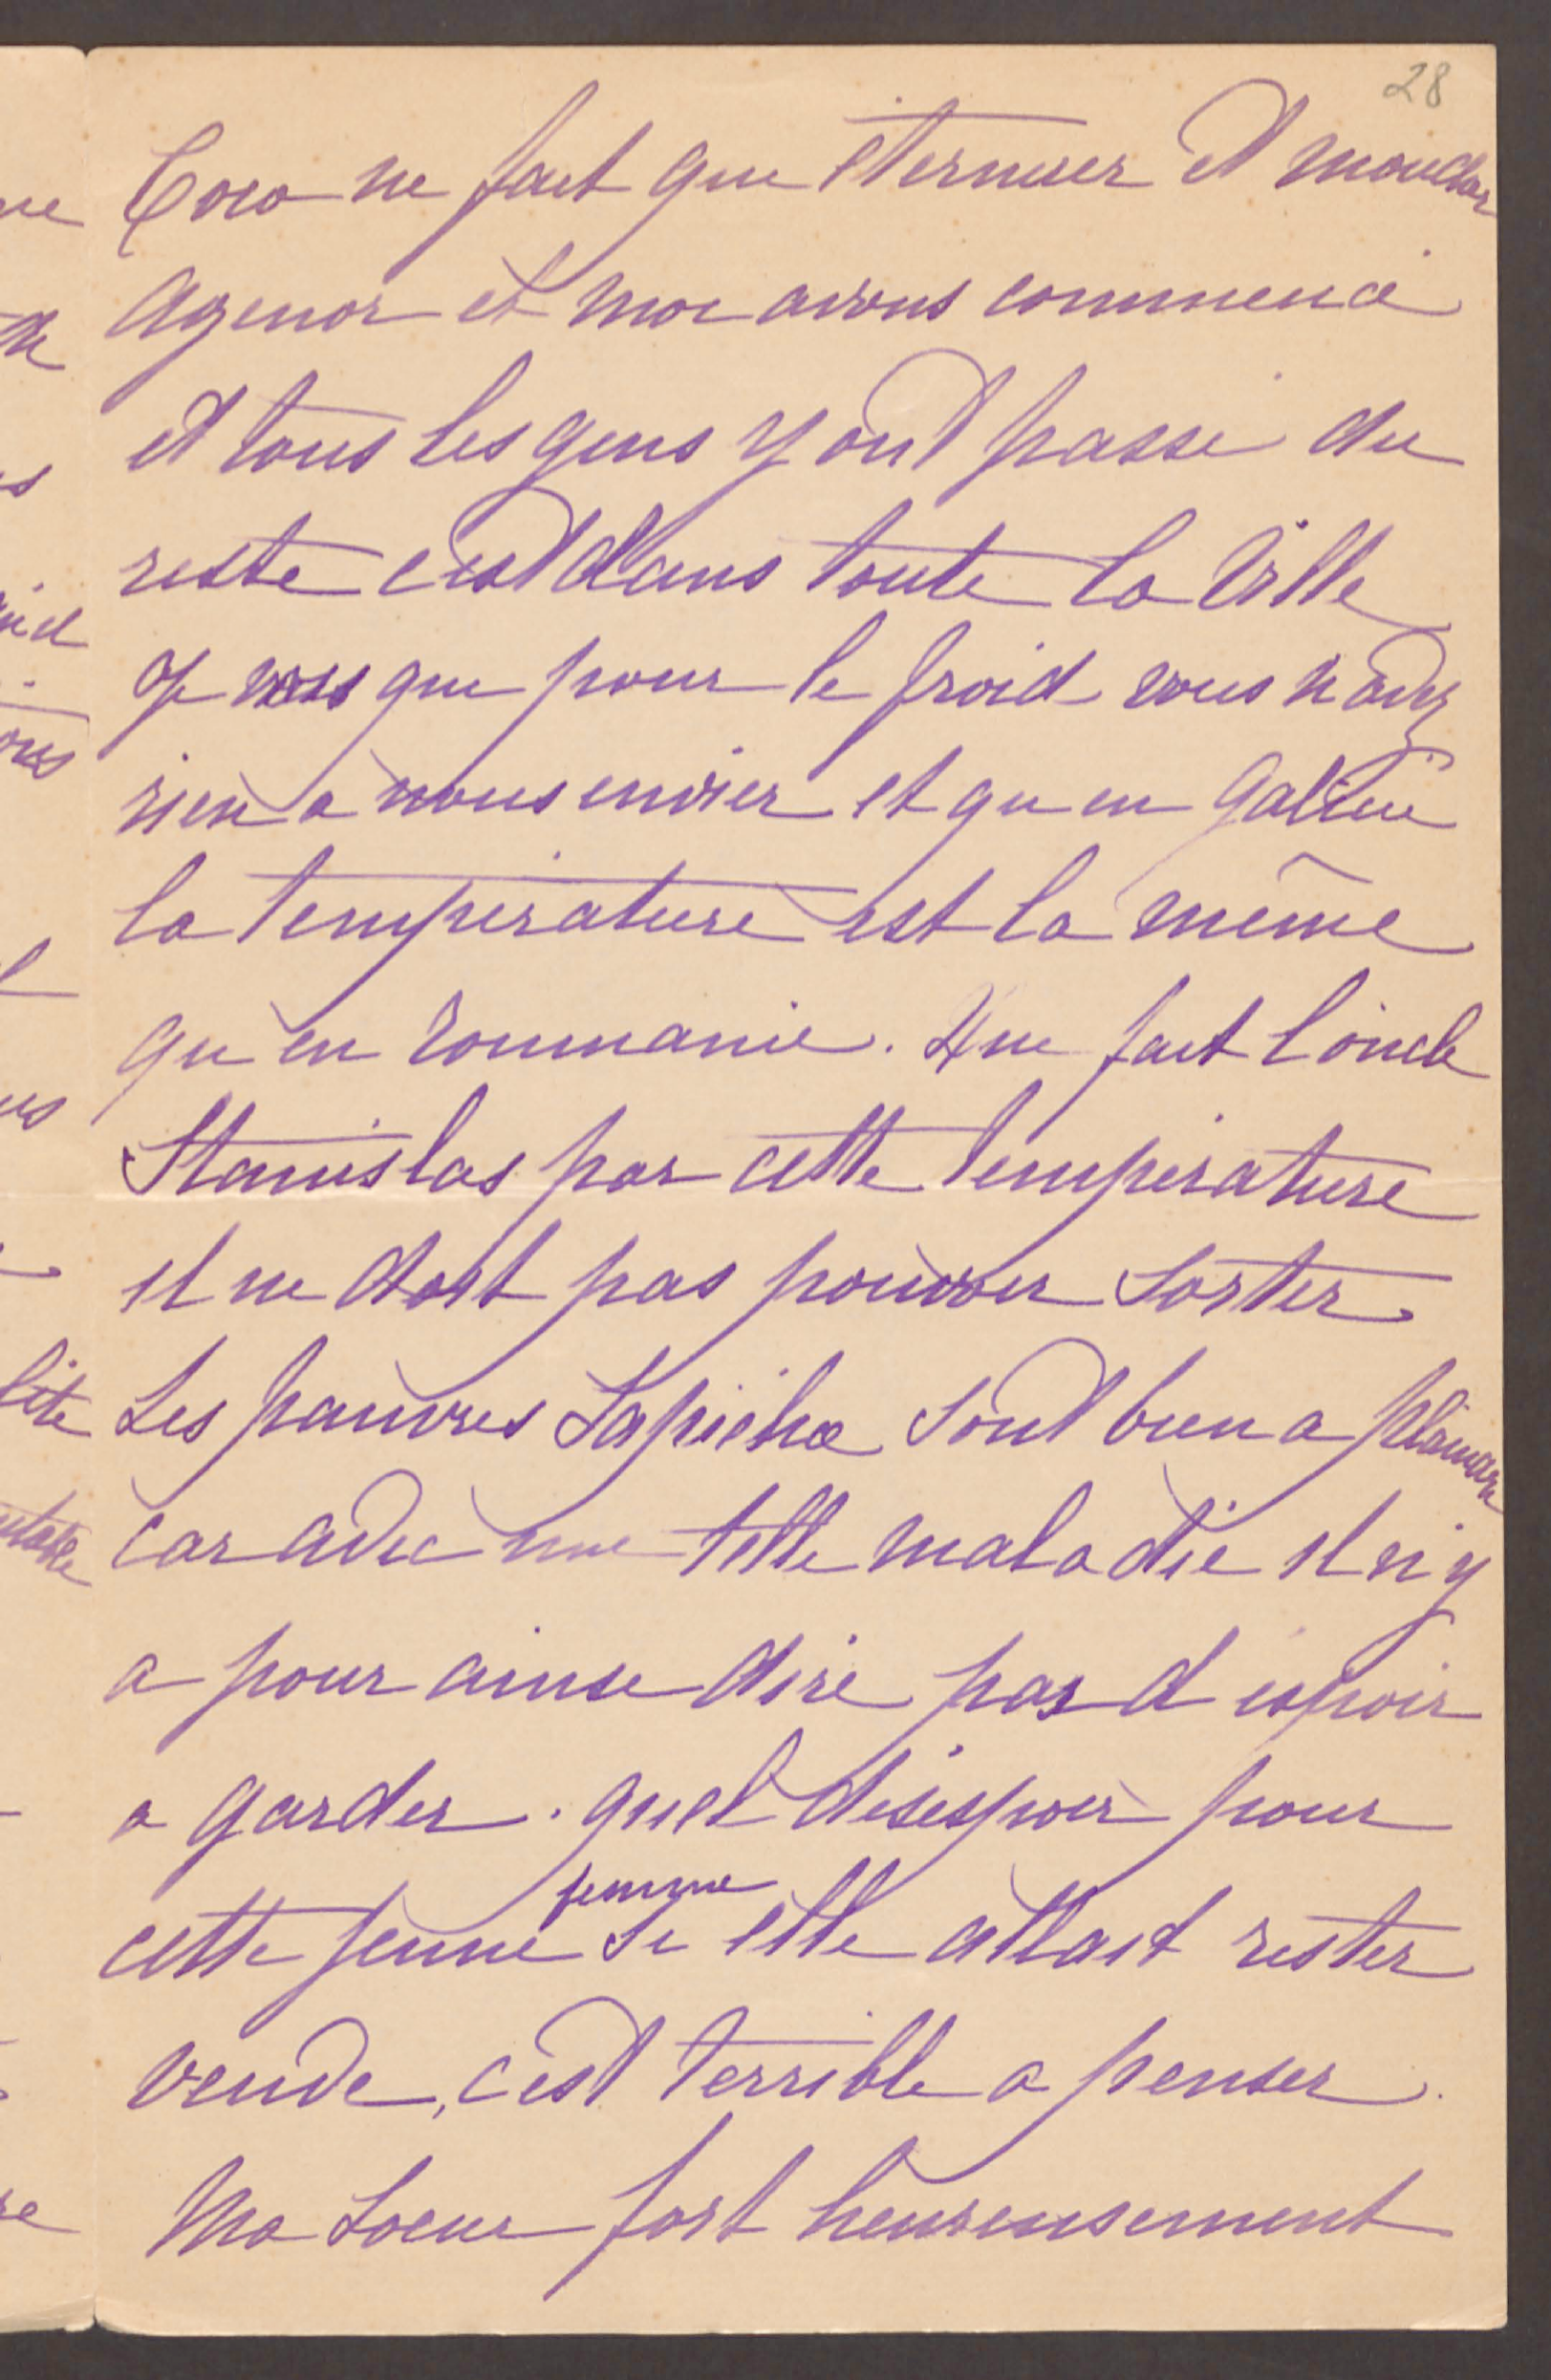 28
Coco ne fait que éternuer et moucher
Agenor et moi avons commencé
et tous les gens y ont passé du
reste c'est dans toute la ville
Je vois que pour le froid vous n'avez
rien a nous envier et qu'en Galicie
la température est la même
qu'en roumanie. Que fait l'oncle
Stanislas par cette température
il ne doit pas pouvoir sortir
Les pauvres Sapieha sont bien a plaindre
car avec une telle maladie il n'y
a pour ainsi dire pas d'espoir
a garder. quel désespoir pour
cette jeune femme si elle allait rester
veuve, c'est terrible a penser.
Ma soeur fort heureusement